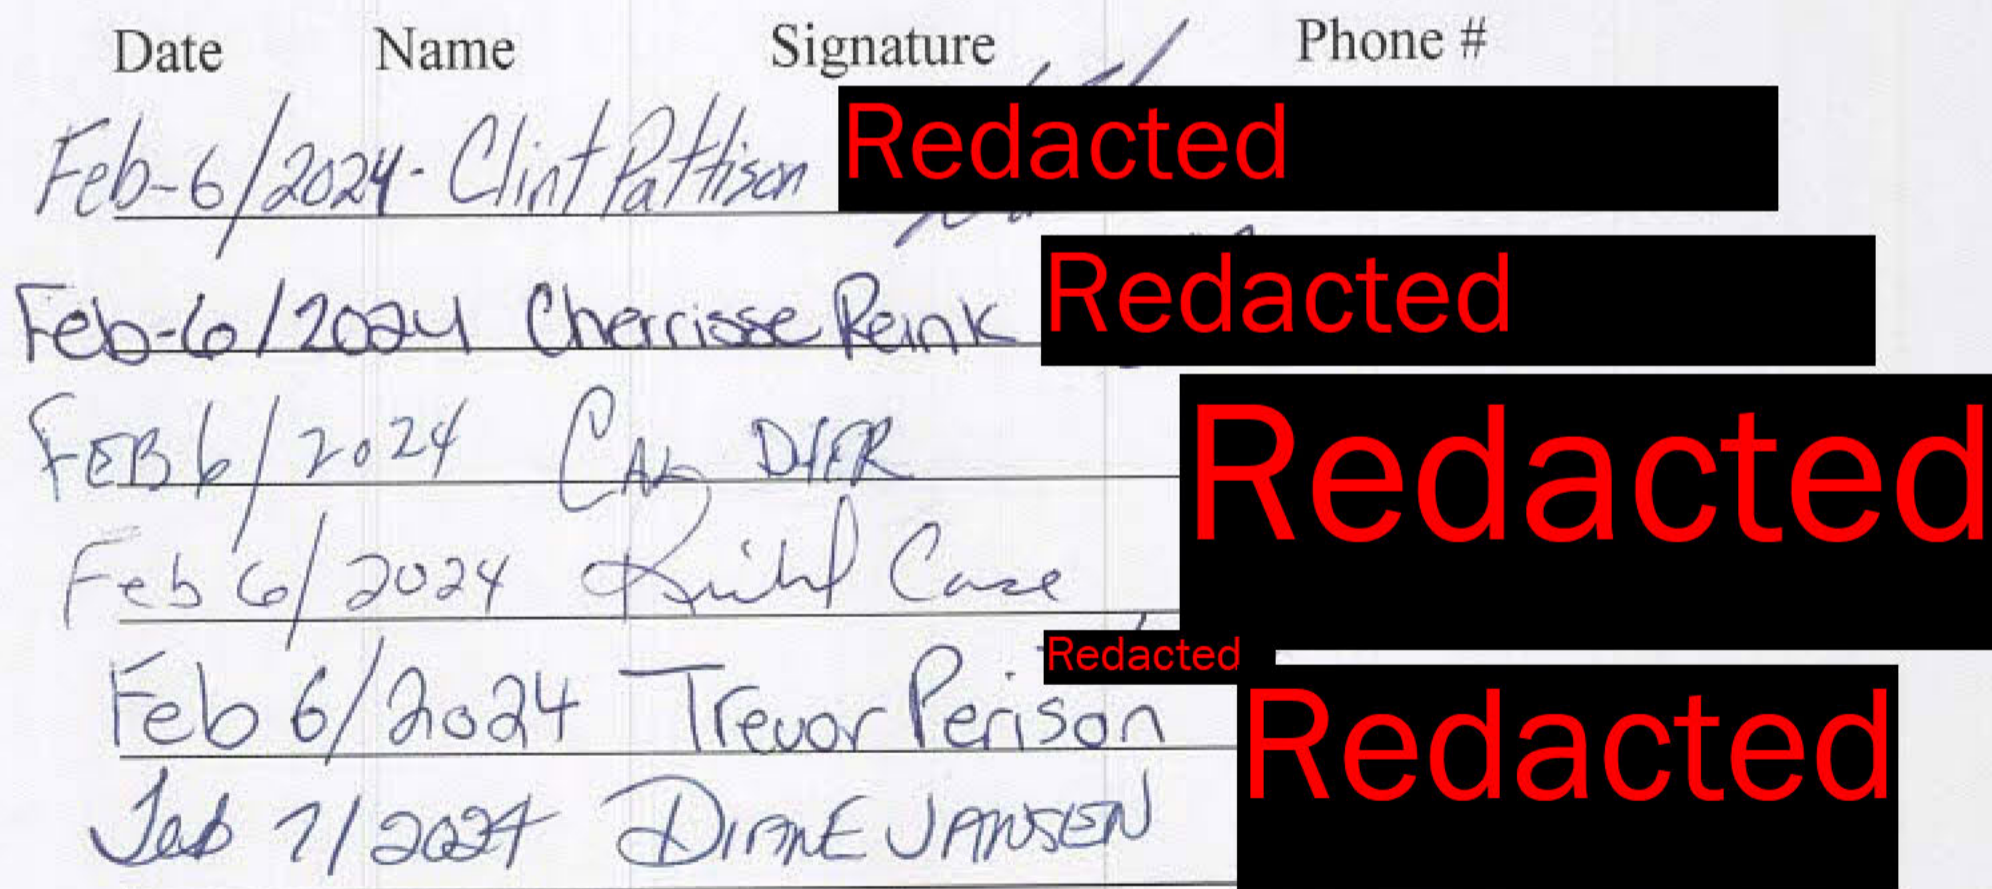 Date Name Signature Phone #
Feb-6/2024- Clint Pattison Redacted
Feb-6/2024 Cherrisse Reink Redacted
FEB 6/2024 CAL DIER Redacted
Feb 6/2024 Case
Redacted
Feb 6/2024 Trevor Perison Redacted
Feb 7/2024 DIANE JANSEN